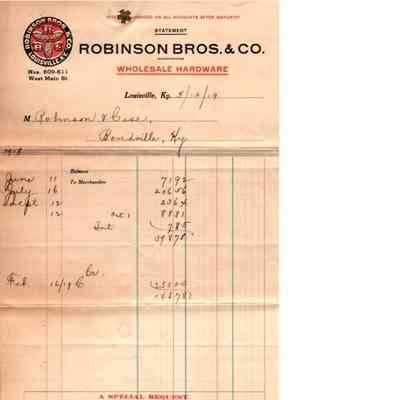 CHARGED ON ALL ACCOUNTS AFTER MATURITY
STATEMENT
ROBINSON BROS. & CO.
INCORPORATED
WHOLESALE HARDWARE
ROBINSON BROS. & CO.
LOUISVILLE, KY.
Nos. 609-611
West Main St.
Louisville, Ky. 5/12/19
M Robinson & Case,
Bondville, Ky
1918
Balance
June 11 To Merchandise 71 92
July 16 206 56
Sept 12 20 64
12 88 81
Int 7 85
398 78
Cr.
Feb. C 250 00
A SPECIAL REQUEST